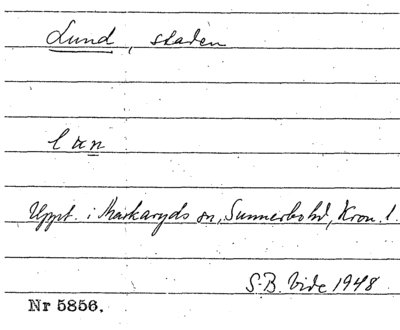 Lund, staden
lxn
Uppt. i Markaryds sn, Sunnerbo hd, Kron. l.
S.B. Vide 1948
Nr 5856.